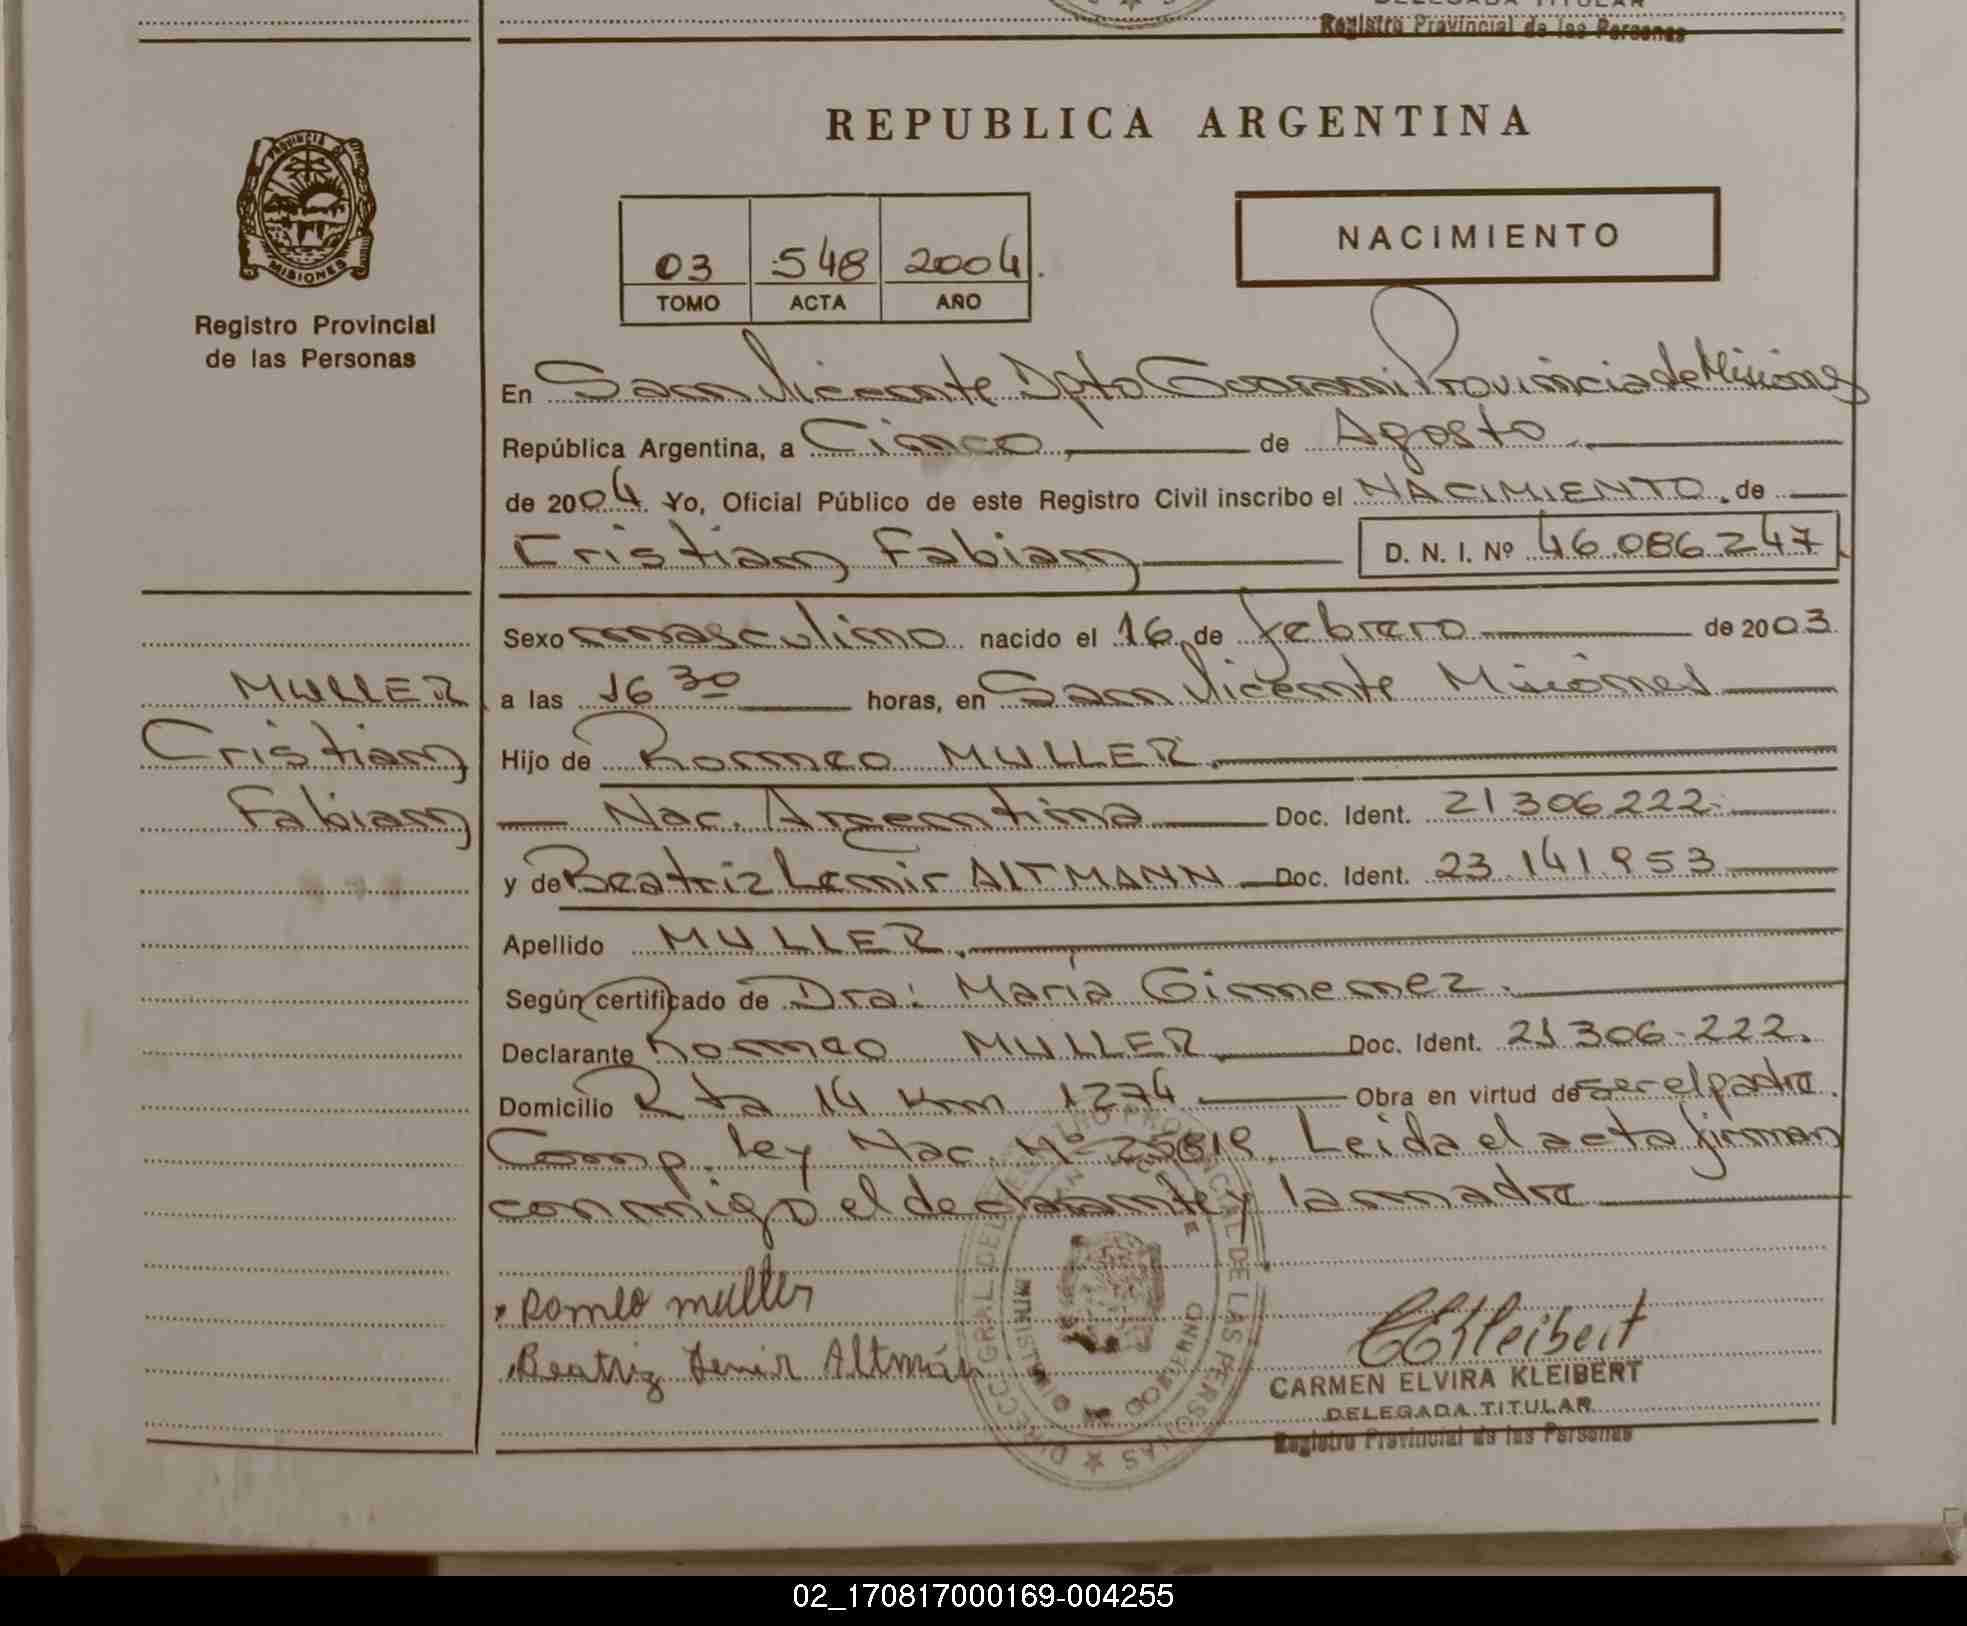 DELEGADA TITULAR
Registro Provincial de las Personas
REPUBLICA ARGENTINA
PROVINCIA DE
MISIONES
Registro Provincial
de las Personas
03 548 2004.
TOMO ACTA AÑO
NACIMIENTO
En San Vicente Dpto Guarani Provincia de Misiones
República Argentina, a Cinco de Agosto
de 2004 Yo, Oficial Público de este Registro Civil inscribo el NACIMIENTO de
Cristian Fabian D. N. I. Nº 46.086.247
Sexo masculino nacido el 16 de febrero de 2003
a las 16 30 horas, en San Vicente Misiones
Hijo de Romeo MULLER
Nac. Argentina Doc. Ident. 21 306 222
y de Beatriz Lenir ALTMANN Doc. Ident. 23.141.953
Apellido MULLER
Según certificado de Dra: María Gimenez.
Declarante Romeo MULLER Doc. Ident. 21 306.222.
Domicilio Rta 14 Km 1274 Obra en virtud de ser el padre.
Comp. ley Nac. Nº 25819. Leida el acta firman
conmigo el declarante y la madre
MULLER
Cristian
Fabian
Romeo muller
Beatriz Lenir Altmán
CEKleibert
CARMEN ELVIRA KLEIBERT
DELEGADA TITULAR
Registro Provincial de las Personas
02_170817000169-004255